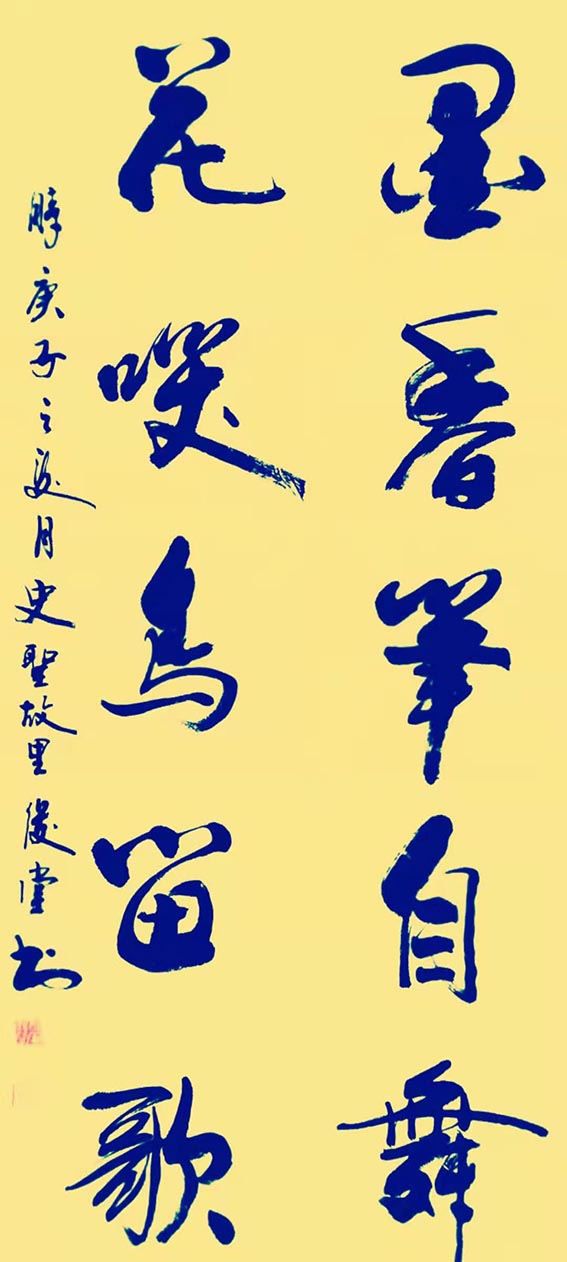 墨香筆自舞
花嘆鳥留歌
時庚子之夏月史聖故里俊堂书